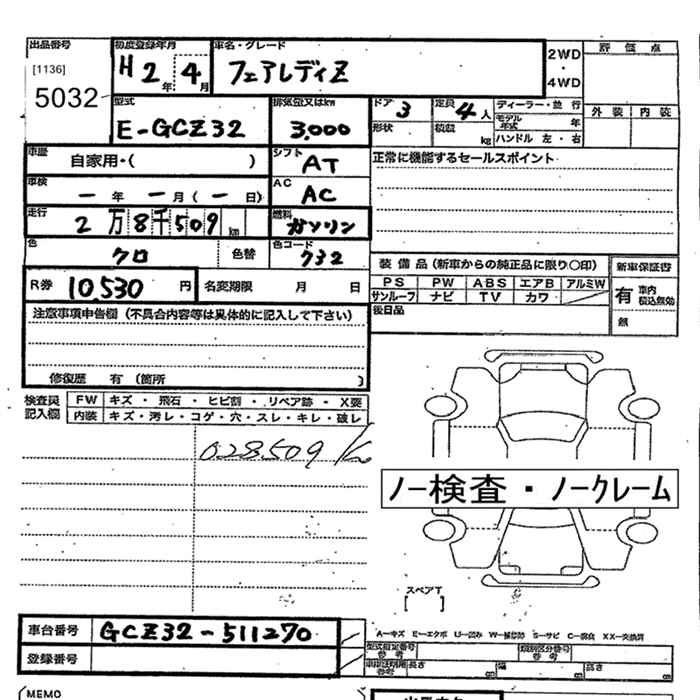 出品番号 初度登録年月 車名・グレード 2WD・4WD 評価点
[1136] 5032 H2年4月 フェアレディZ
外装 内装
型式 排気量又はkw ドア 3 定員 4人 ディーラー・並行
E-GCZ32 3,000 形状 積載 kg モデル年式 年
ハンドル 左・右
車歴 自家用・( ) シフト AT 正常に機能するセールスポイント
車検 ー年ー月(ー日) AC AC
走行 2万8千509km 燃料 ガソリン
色 クロ 色替 色コード 732
装備品(新車からの純正品に限り〇印) 新車保証書
R券 10,530円 名変期限 月 日 PS PW ABS エアB アルミW 有 車内 税込無効
サンルーフ ナビ TV カワ
注意事項申告欄(不具合内容等は具体的に記入して下さい) 後日品 無
修復歴 有(箇所 )
検査員記入欄 FW キズ・飛石・ヒビ割・リペア跡・X要
内装 キズ・汚レ・コゲ・穴・スレ・キレ・破レ
028.509
ノー検査・ノークレーム
スペアT
[ ]
車台番号 GCZ32-511270 A-キズ E-エクボ U-凹み W-補修跡 S-サビ C-腐食 XX-交換済
登録番号 型式指定番号 参考 類別区分番号 参考
長さ cm 幅 cm 高さ cm
(MEMO